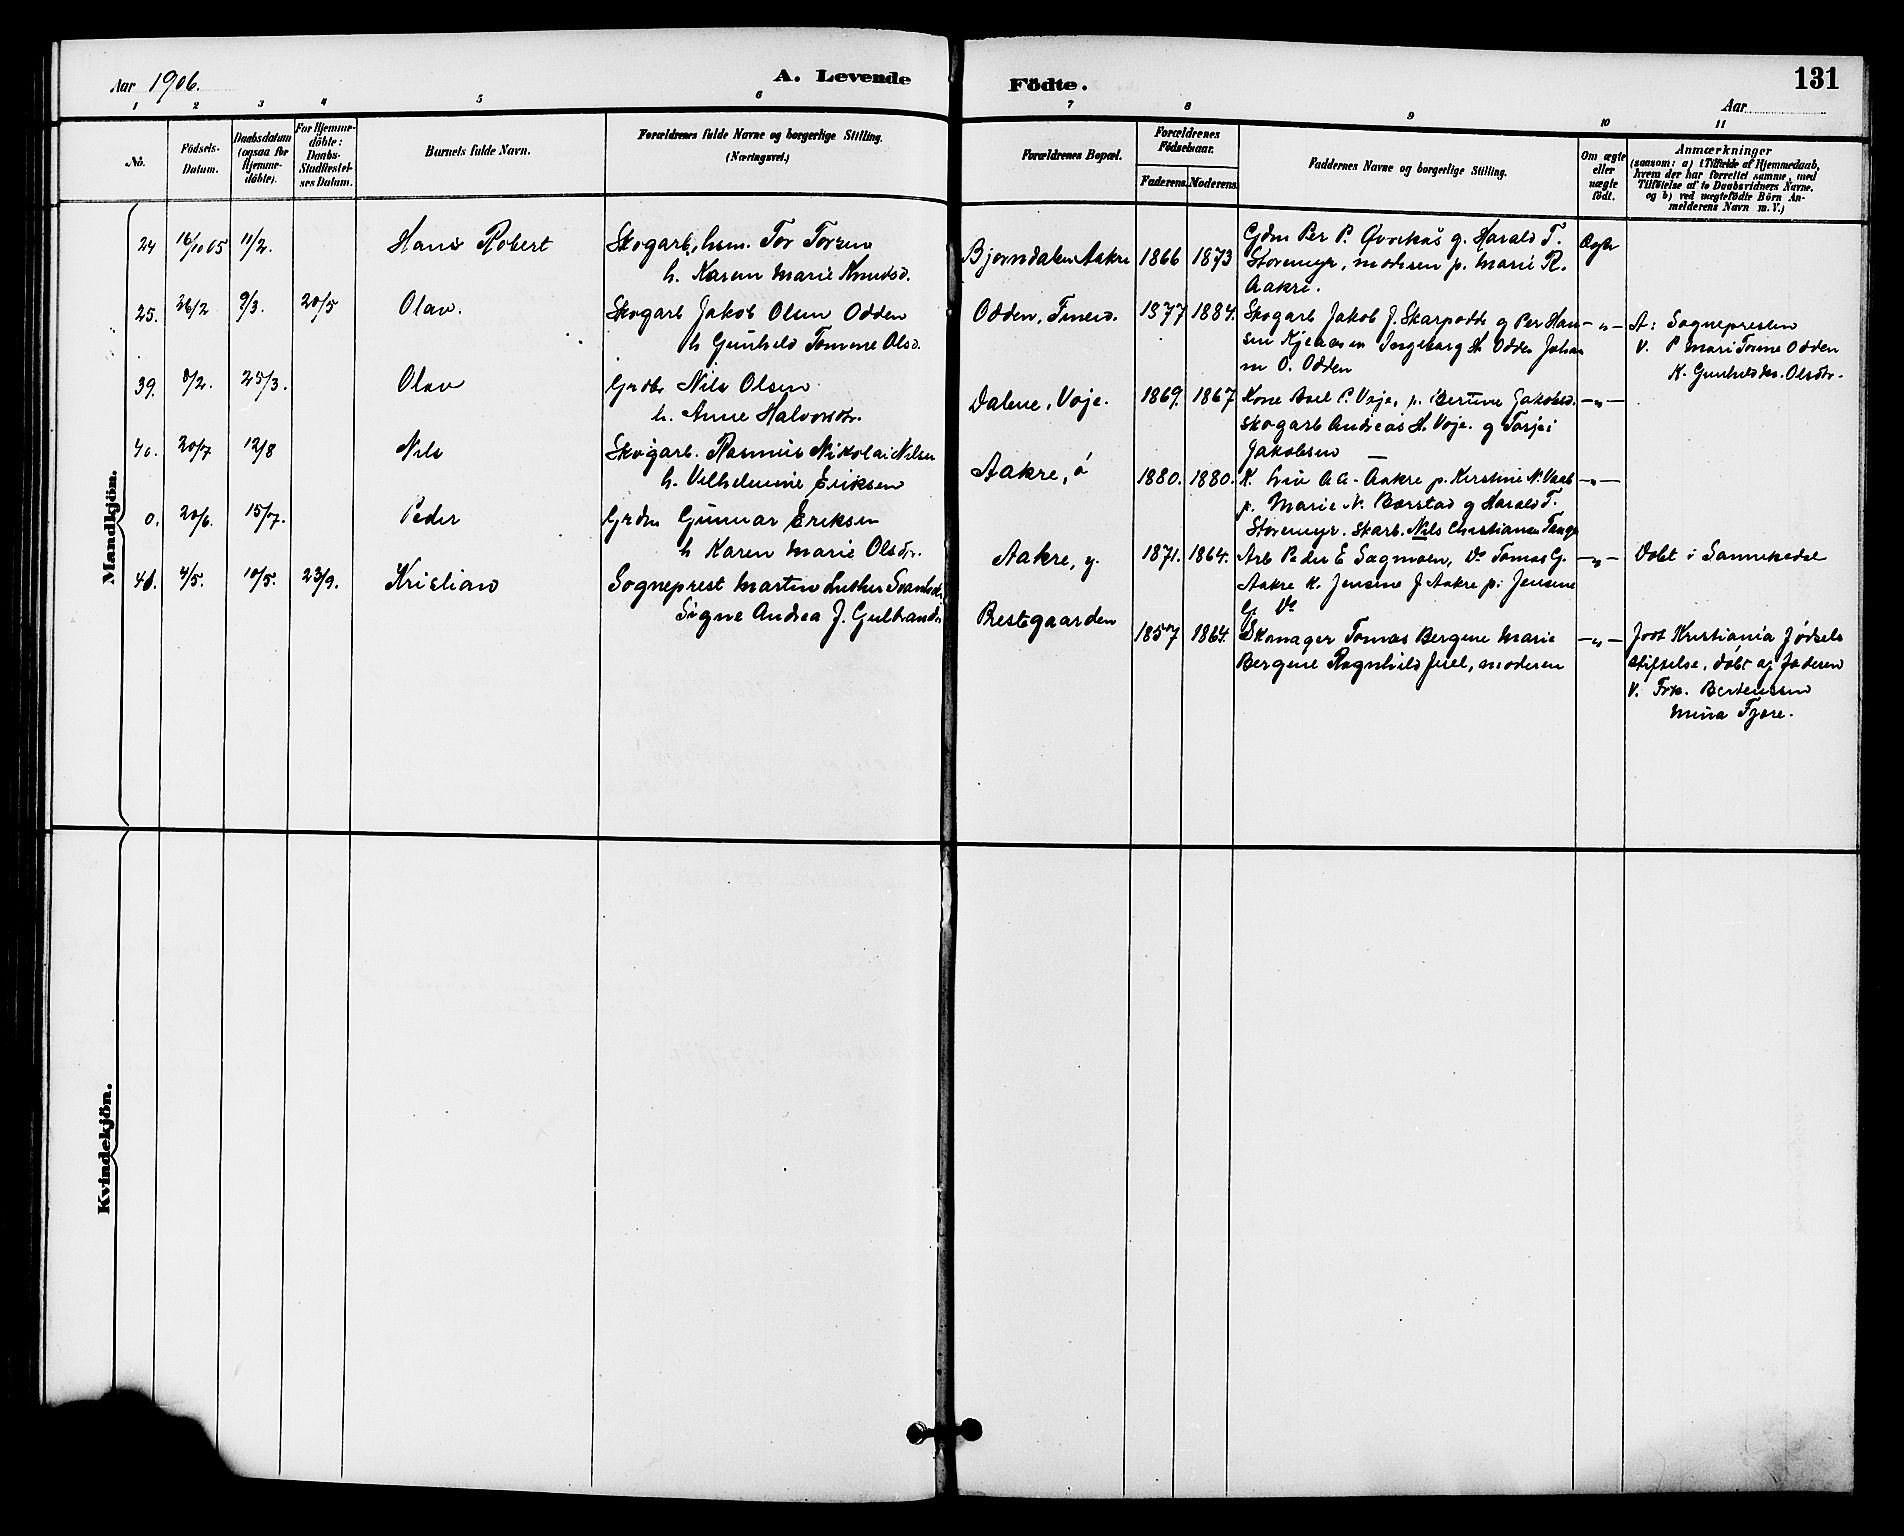 Aar 1906.
A. Levende
Födte.
131
Aar
1 2 3 4 5 6 7 8 9 10 11
No.
Födsels-
Datum.
Daabsdatum
(ogsaa for
Hjemme-
döbte).
For Hjemme-
döbte:
Daabs-
Stadfæstel-
ses Datum.
Barnets fulde Navn.
Forældrenes fulde Navne og borgerlige Stilling.
(Næringsvei.)
Forældrenes Bopæl.
Forældrenes
Födselsaar.
Faderens.
Moderens.
Faddernes Navne og borgerlige Stilling.
Om ægte
eller
uægte
födt.
Anmærkninger
(saasom: a) i Tilfælde af Hjemmedaab,
hvem der har forrettet samme, med
Tilföielse af to Daabsvidners Navne.
og b) ved uægtefödte Börn An-
melderens Navn m. V.)
Mandkjön.
24 16/10 05 11/2. Hans Robert
Skogarb, hsm. Tor Torsen
h. Karen Marie Knudsd.
Bjorndalen Aakre 1866 1873
Gdm Per P. Qvorkås g. Harald T.
Storemyr, moderen p. Marie R.
Aakre.
Ægte
25. 26/2 9/3. 20/5 Olav.
Skogarb Jakob Olsen Odden
h Gunhild Tomine Olsd.
Odden, 1877 1884.
Skogarb Jakob J. Skarpodde g Per Han-
sen Ingeborg H. Odden Johan
O. Odden
-„-
A: Sognepresten
V. P Mari Tomine Odden
K. Gunhild Olsdtr.
39. 8/2. 25/3. Olav
Grdbr Nils Olsen
h. Anne Halvorsdtr.
Dalene, Voje. 1869. 1867
Kone Axel P. Voje, p. Berthe Jakobsd.
skogarb Andreas H. Voje. g Torje
Jakobsen
-„-
40. 20/7 12/8 Nils
Skogarb. Rasmus Nikolai Nilsen
h. Vilhelmine Eriksen
Aakre, ö 1880. 1880.
K. Liv A A- Aakre p. Kerstine N.
p. Marie N. Barstad g Harald T.
Storemyr. Skarb. Nils Christiansen Tange
-„-
0. 20/6. 15/7. Peder
Grdm Gunnar Eriksen
h Karen Marie Olsdtr.
Aakre, y. 1871. 1864.
Arb Peder E Sagmoen, Do Tomas G.
Aakre K. Jensine J Aakre p. Jensine
G. Do
-„-
Döbt i Sannikedal
41. 4/5. 10/5. 23/9. Kristian
Sogneprest Martin Luther Svanholt
Signe Andrea J. Gulbrands
Prestgaarden 1857 1864.
Skomager Tomas Bergene Marie
Bergene Ragnhild Juel, moderen
-„-
Födt Kristiania Födsels
stiftelse, döbt af faderen
V. Frk. Berntensen
Mina Tjore.
Kvindekjön.